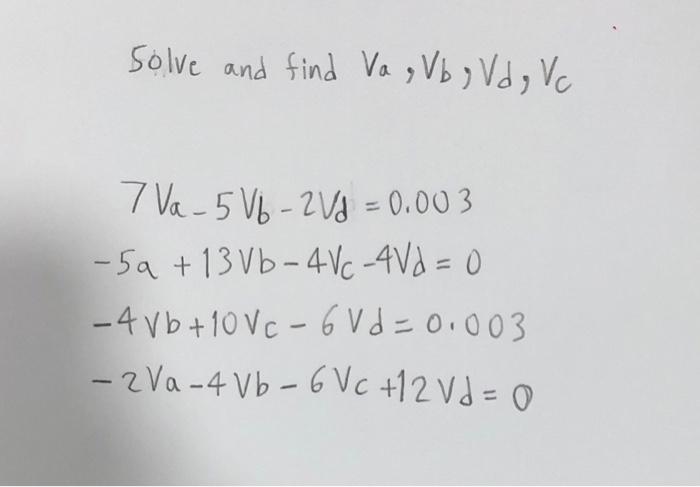 Solve and find Va, Vb, Vd, Vc
7Va - 5Vb - 2Vd = 0.003
-5a + 13Vb - 4Vc - 4Vd = 0
-4Vb + 10Vc - 6Vd = 0.003
-2Va - 4Vb - 6Vc + 12Vd = 0